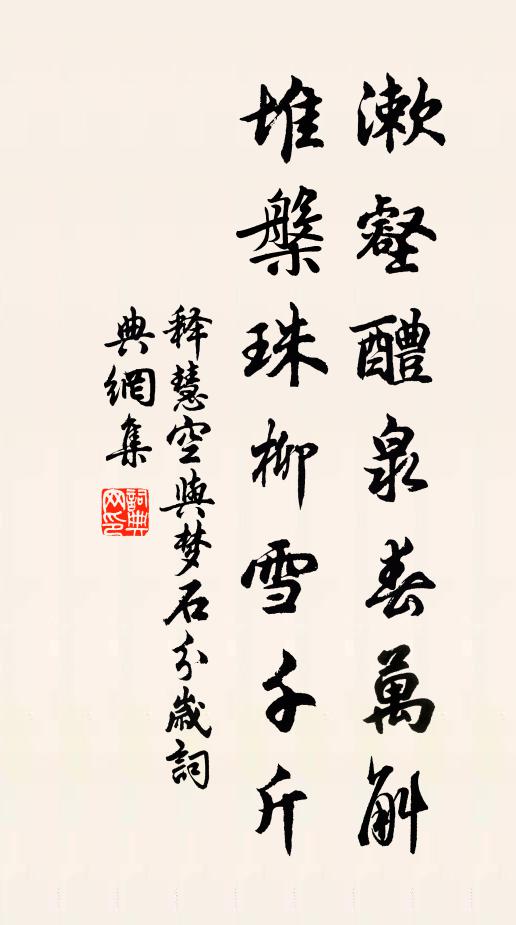 漱壑醴泉春萬斛
堆槃珠柳雪千斤
释慧空與梦石分歲詞
典網集
詞典網印